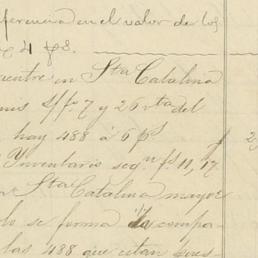 iferencia en el valor de los
4 ps.
cuentre en Sta Catalina
7 y 26 vta del
hay 488 á 6 ps
Inventario seg.n fs 11, 17
Sta Catalina mayor
lo se forma la compa
las 488 que estan